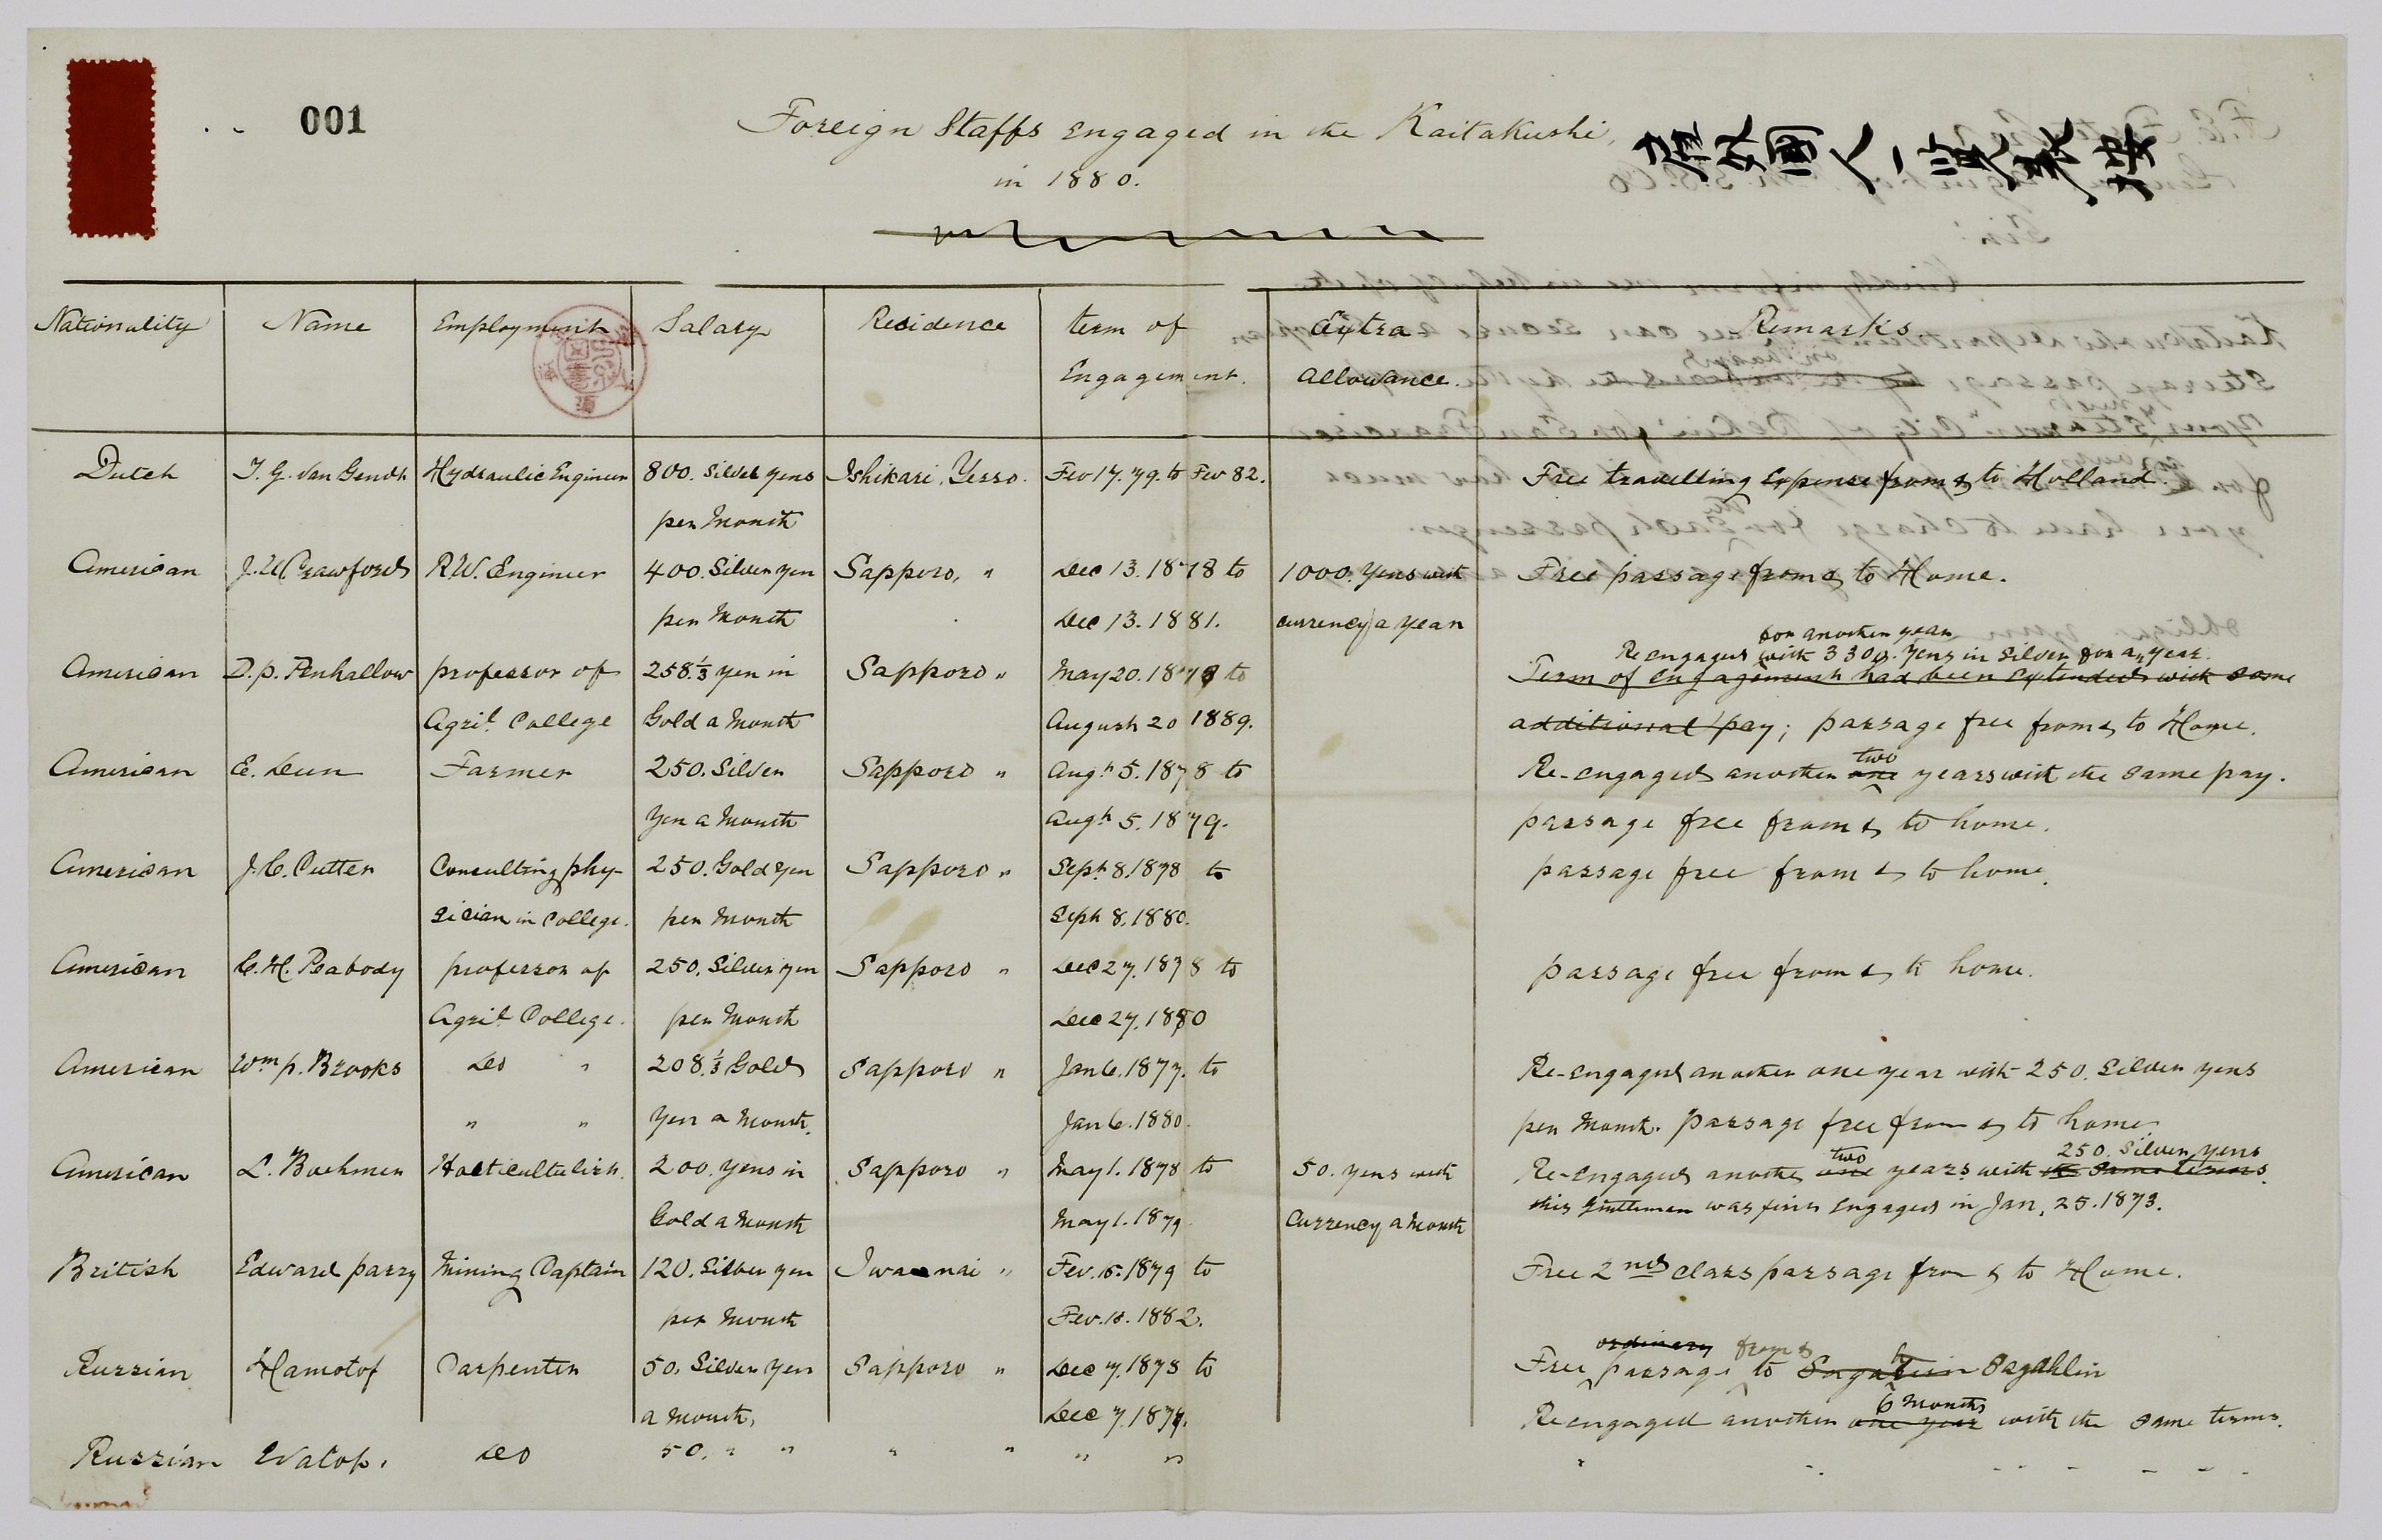 001
Foreign Staffs engaged in the Kaitakushi,
in 1880.
Nationality Name Employment Salary Residence term of Extra Remarks.
Engagement. Allowance.
Dutch J. G. Van Gendt Hydraulic Engineer 800. Silver yens Ishikari, Yesso. Fev 17. 79. to Fev 82. Free travelling Expense from & to Holland.
per Month
American J. U. Crawford R.W. Engineer 400. Silver yen Sapporo, " Dec 13. 1878 to 1000. yens with Free passage from & to Home.
per Month Dec 13. 1881. currency a year
for another year
Re engaged with 3300. Yens in Silver for a year.
American D. p. Penhallow professor of 258.⅓ yen in Sapporo " May 20. 1878 to Term of engagement had been Extended with some
Agril. College Gold a Month August 20 1889. additional pay; passage free from & to Home.
two
American E. Dun Farmer 250. Silver Sapporo " Augt. 5. 1878 to Re-engaged another one years with the same pay.
Yen a Month Augt. 5. 1879. passage free from & to home.
American J. C. Cutter Consulting phy- 250. Gold yen Sapporo " Sept. 8. 1878 to passage free from & to home.
sician in College. per Month Sept 8. 1880.
American C. H. Peabody professor of 250. Silver yen Sapporo " Dec 27. 1878 to passage free from & to home.
Agril. College. per Month Dec 27. 1880
American Wm. p. Brooks Do " 208.⅓ Gold Sapporo " Jan 6. 1877. to Re-engaged another one year with 250. Silver yens
" " Yen a Month. Jan 6. 1880. per Month. passage free from & to home
two 250. Silver yens
American L. Boehmer Horticulturist. 200. yens in Sapporo " May 1. 1878 to 50. yens with Re-engaged another one years with the same terms.
Gold a Month May 1. 1879. Currency a Month this Gentleman was first engaged in Jan, 25. 1873.
British Edward parry Mining Captain 120. Silver yen Iwanai " Fev. 15. 1879 to Free 2nd class passage from & to Home.
per Month Fev. 15. 1882.
ordinary from &
Russian Hamotof Carpenter 50. Silver Yen Sapporo " Dec 7. 1878 to Free passage to Sagahlin
a Month, Dec 7. 1879.
6 months
Re engaged another one year with the same terms.
Russian Do 50. " " " " " "